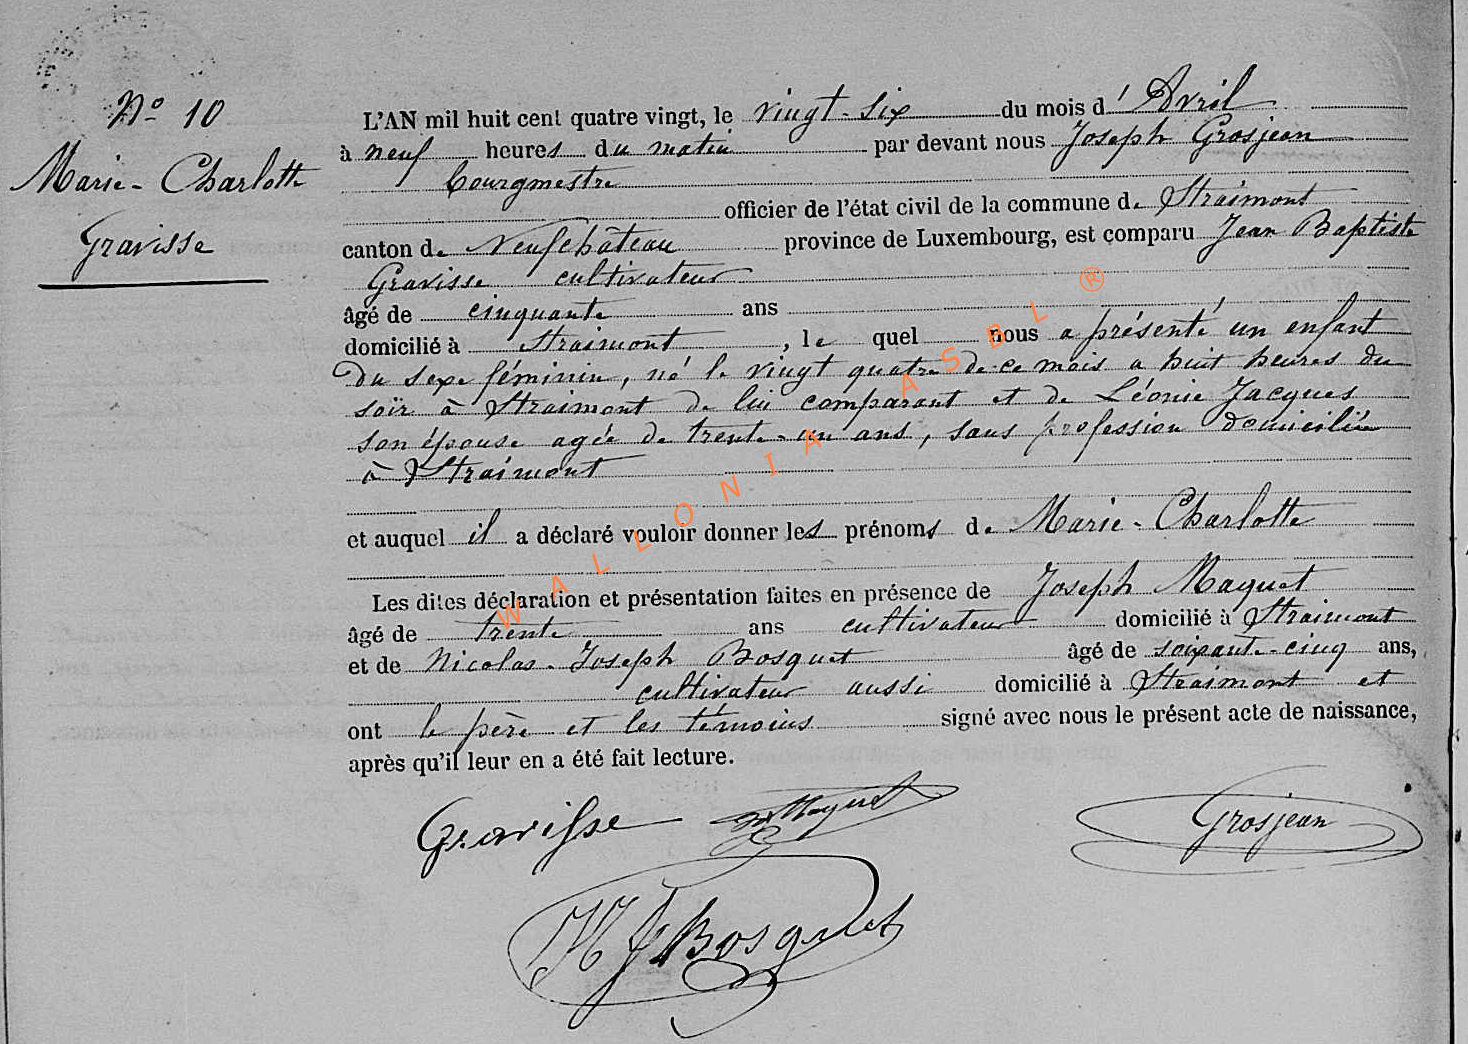 N° 10
Marie-Charlotte
Gravisse
L'AN mil huit cent quatre vingt, le vingt-six du mois d'Avril
à neuf heures du matin par devant nous Joseph Grosjean
bourgmestre
officier de l'état civil de la commune de Straimont
canton de Neufchâteau province de Luxembourg, est comparu Jean Baptiste
Gravisse cultivateur
âgé de cinquante ans
domicilié à Straimont, le quel nous a présenté un enfant
du sexe féminin, né le vingt quatre de ce mois a huit heures du
soir à Straimont de lui comparant et de Léonie Jacques
son épouse agée de trente-un ans, sans profession domiciliée
à Straimont
et auquel il a déclaré vouloir donner les prénoms de Marie-Charlotte
Les dites déclaration et présentation faites en présence de Joseph Maquet
âgé de trente ans cultivateur domicilié à Straimont
et de Nicolas-Joseph Bosquet âgé de soixante-cinq ans,
cultivateur aussi domicilié à Straimont et
ont le père et les témoins signé avec nous le présent acte de naissance,
après qu'il leur en a été fait lecture.
Gravisse Maquet Grosjean
NJBosquet
WALLONIA ASBL ®